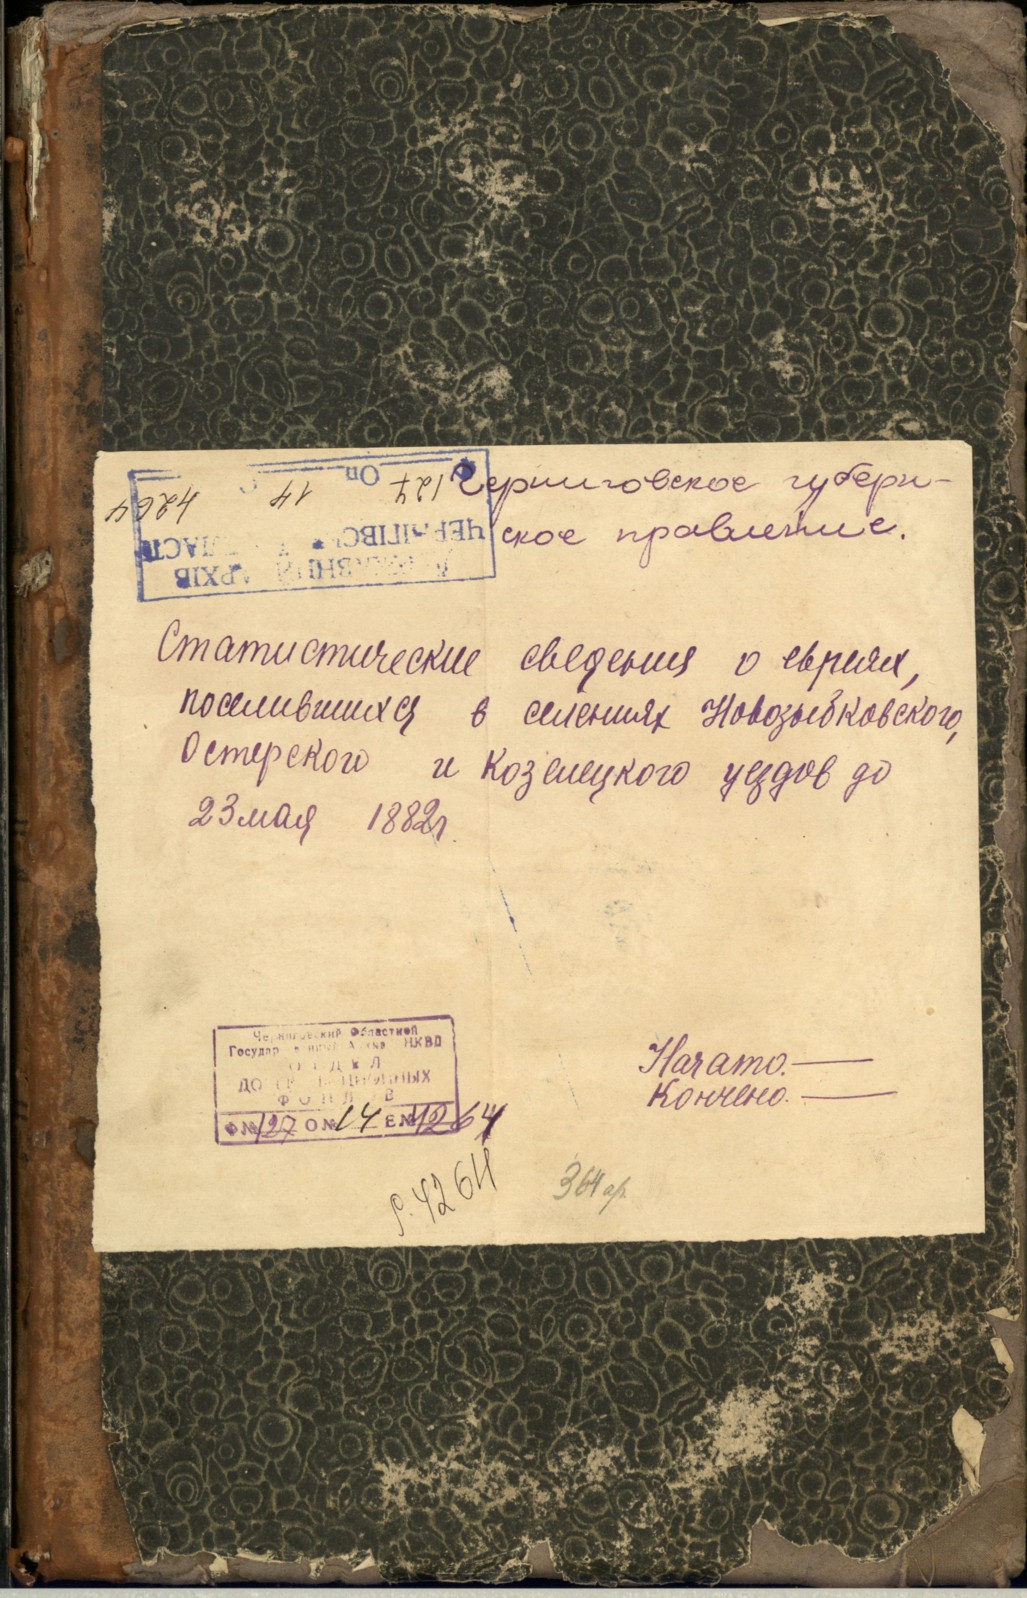 Черниговское губерн-
ское правление.
127 Оп. 14 4264
ЧЕРНІГІВСЬК ОБЛАСТІ
АРХІВ
Статистические сведения о евреях,
поселившихся в селениях Новозыбковского,
Остерского и Козелецкого уездов до
23 мая 1882г.
Черниговский Областной
Государственный Архив НКВД
ОТДЕЛ
ФОНДОВ
Ф № 127 О № 14 Е № 4264
Начато. —
Кончено. —
р. 4264
364 ар.